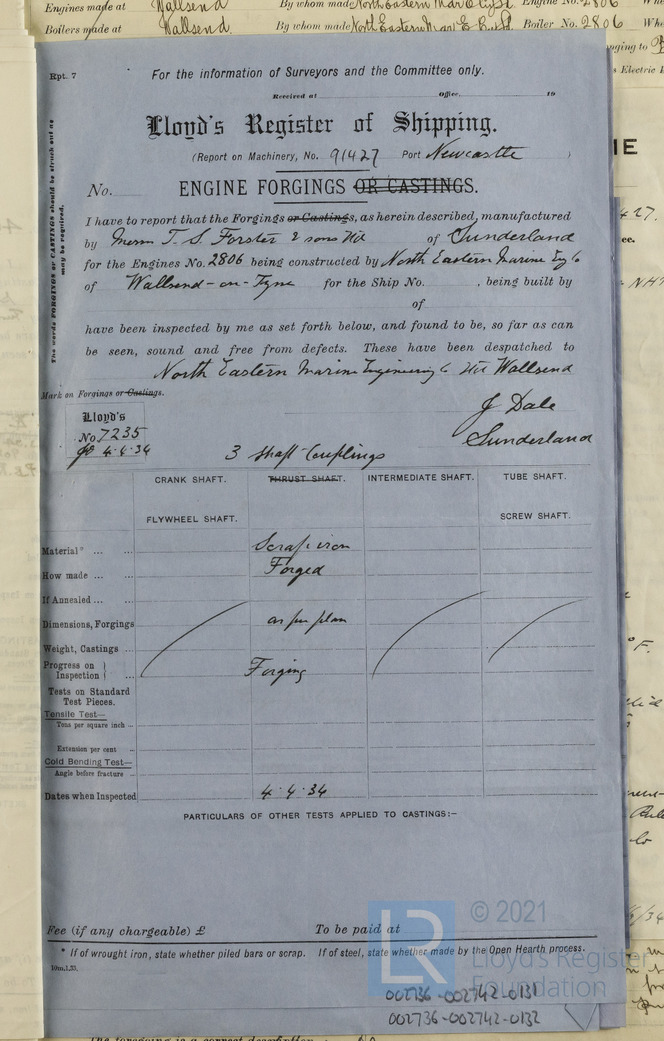 Engines made at Wallsend By whom made North Eastern Mar E Cy Ld. Engine No. 2806
Boilers made at Wallsend. By whom made North Eastern Mar E Cy Ld. Boiler No. 2806
Rpt. 7
For the information of Surveyors and the Committee only.
Received at Office 19
Lloyd's Register of Shipping.
(Report on Machinery, No. 91427 Port Newcastle )
No. ENGINE FORGINGS OR CASTINGS.
The words FORGINGS or CASTINGS should be struck out as may be required.
I have to report that the Forgings or Castings, as herein described, manufactured
by Messrs T. S. Forster & sons Ltd of Sunderland
for the Engines No. 2806 being constructed by North Eastern Marine Eng Co
of Wallsend-on-Tyne for the Ship No. , being built by
of
have been inspected by me as set forth below, and found to be, so far as can
be seen, sound and free from defects. These have been despatched to
North Eastern Marine Engineering Co Ltd Wallsend
Mark on Forgings or Castings.
Lloyd's
No 7235
JD 4.4.34
J Dale
Sunderland
3 Shaft Couplings
CRANK SHAFT. THRUST SHAFT. INTERMEDIATE SHAFT. TUBE SHAFT.
FLYWHEEL SHAFT. SCREW SHAFT.
Material* ... ... Scrap iron
How made ... ... Forged
If Annealed ... ...
Dimensions, Forgings as per plan
Weight, Castings ...
Progress on Inspection ... Forging
Tests on Standard
Test Pieces.
Tensile Test—
Tons per square inch ...
Extension per cent ...
Cold Bending Test—
Angle before fracture ...
Dates when Inspected 4.4.34
PARTICULARS OF OTHER TESTS APPLIED TO CASTINGS:–
Fee (if any chargeable) £ To be paid at
* If of wrought iron, state whether piled bars or scrap. If of steel, state whether made by the Open Hearth process.
10m.1,33.
© 2021
LR
Lloyd's Register
Foundation
002736-002742-0131
002736-002742-0132